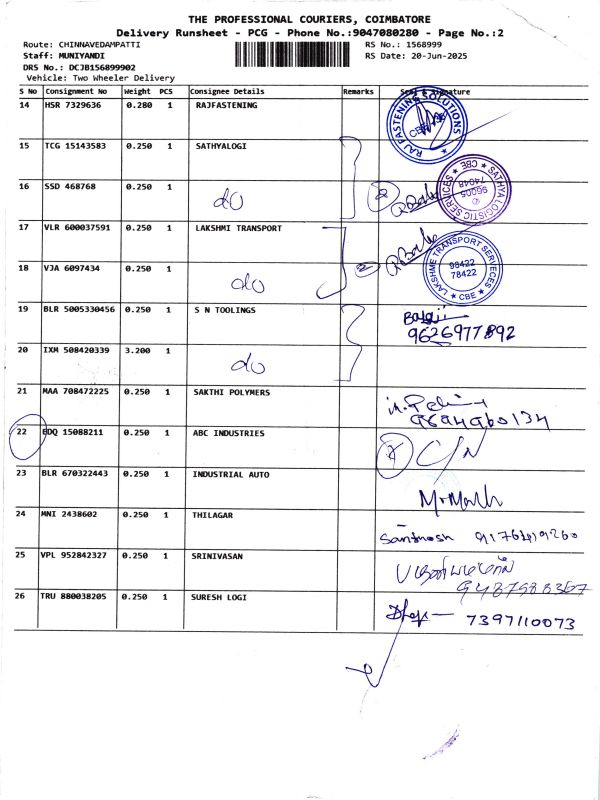 THE PROFESSIONAL COURIERS, COIMBATORE
Delivery Runsheet - PCG - Phone No.:9047080280 - Page No.:2
Route: CHINNAVEDAMPATTI RS No.: 1568999
Staff: MUNIYANDI RS Date: 20-Jun-2025
DRS No.: DCJB156899902
Vehicle: Two Wheeler Delivery
S No Consignment No Weight PCS Consignee Details Remarks Seal & Signature
14 HSR 7329636 0.280 1 RAJFASTENING
RAJ FASTENING SOLUTIONS CBE
15 TCG 15143583 0.250 1 SATHYALOGI
16 SSD 468768 0.250 1 do 2
SATHYA LOGISTIC SERVICES CBE
17 VLR 600037591 0.250 1 LAKSHMI TRANSPORT
18 VJA 6097434 0.250 1 do 2
LAKSHME TRANSPORT SERVECES 98422 78422 CBE
19 BLR 5005330456 0.250 1 S N TOOLINGS Balaji
9626977892
20 IXM 508420339 3.200 1 do
21 MAA 708472225 0.250 1 SAKTHI POLYMERS
9894960134
22 EDQ 15088211 0.250 1 ABC INDUSTRIES C/N
23 BLR 670322443 0.250 1 INDUSTRIAL AUTO
24 MNI 2438602 0.250 1 THILAGAR Santhosh
25 VPL 952842327 0.250 1 SRINIVASAN
9487988367
26 TRU 880038205 0.250 1 SURESH LOGI 7397110073